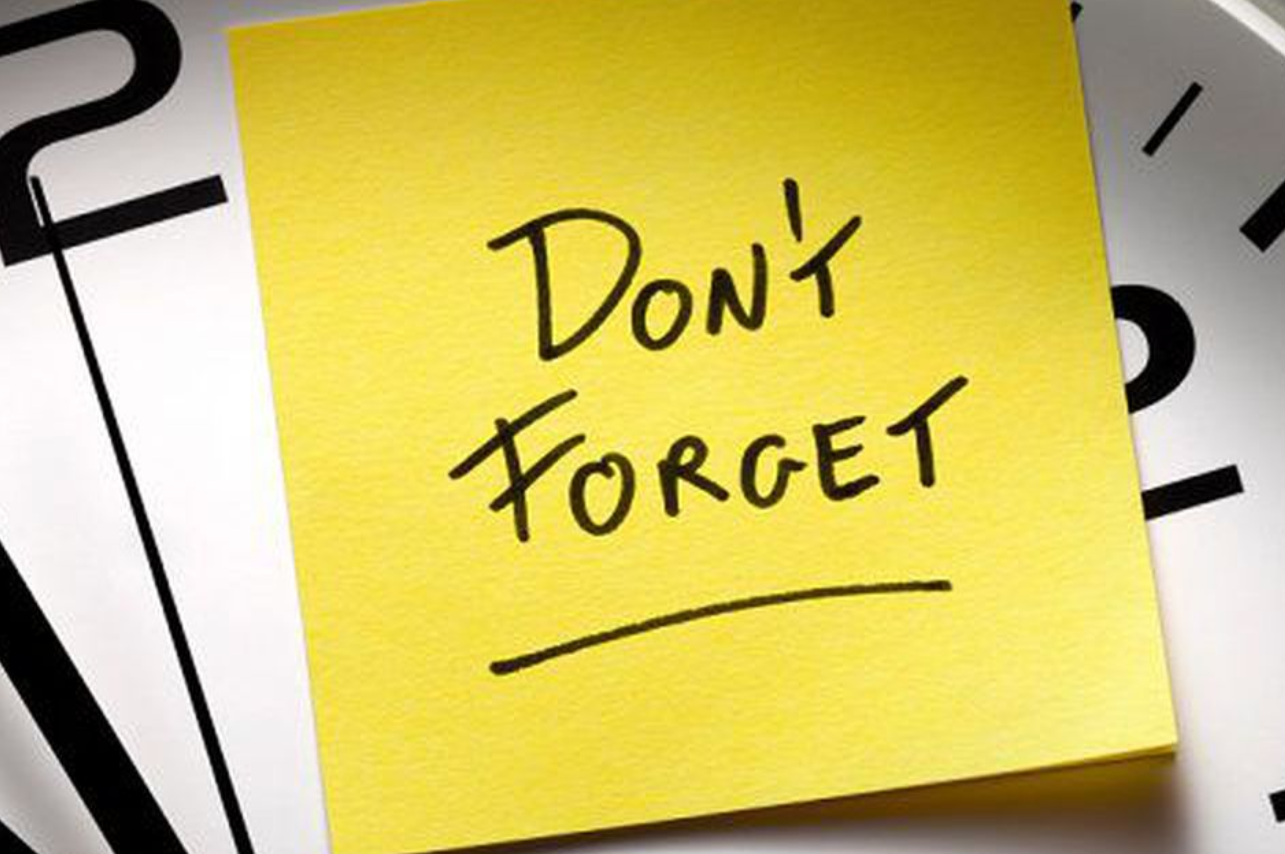 2
DON'T
2
FORGET